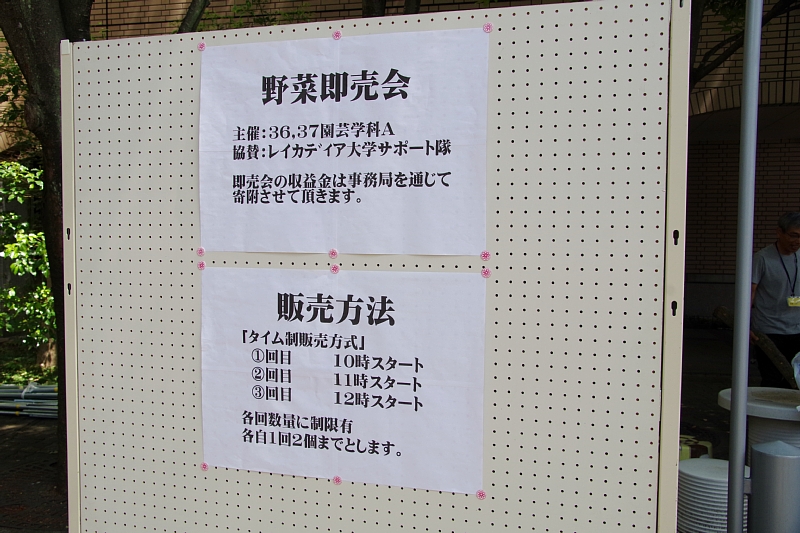 野菜即売会
主催：36,37園芸学科A
協賛：レイカディア大学サポート隊
即売会の収益金は事務局を通じて
寄附させて頂きます。
販売方法
「タイム制販売方式」
①回目 10時スタート
②回目 11時スタート
③回目 12時スタート
各回数量に制限有
各自1回2個までとします。